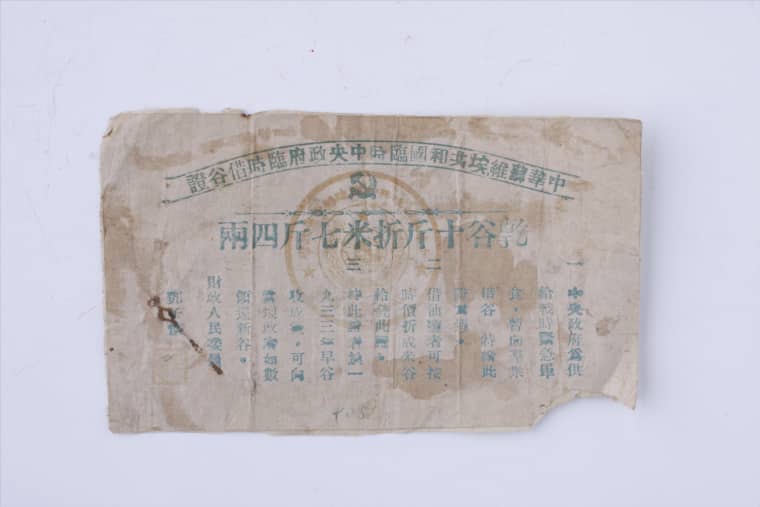 中華蘇維埃共和國臨時中央政府臨時借谷證
乾谷十斤折米七斤四兩
一 中央政府為供
給戰時緊急軍
食,暫向羣眾
借谷,特給此
證為憑。
二 借油鹽者可按
時價折成米谷
給發此證。
三 持此證者於一
九三三年早谷
收成後,可向
當地政府如數
領還新谷。
財政人民委員
鄧子恢